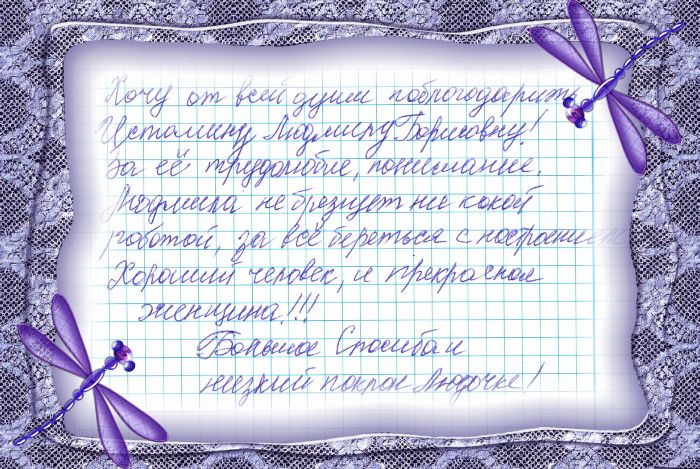 Хочу от всей души поблагодарить
Истомину Людмилу Борисовну!
За её трудолюбие, понимание.
Людмила не брезгует не какой
работой, за всё береться с настроением
Хороший человек, и прекрасная
женщина!!!
Большое Спосибо и
низкий поклон Людочке!